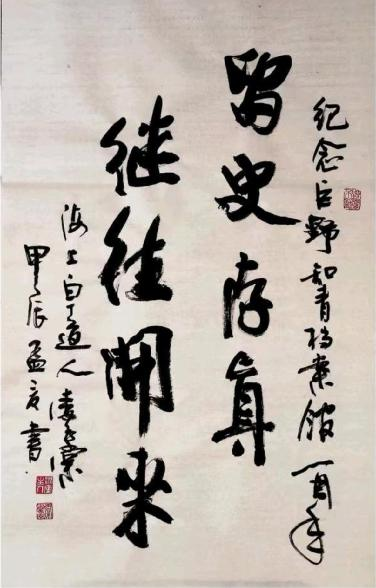 纪念巨野知青档案馆一周年
留史存真
继往開来
海上白丁道人
甲辰孟夏書